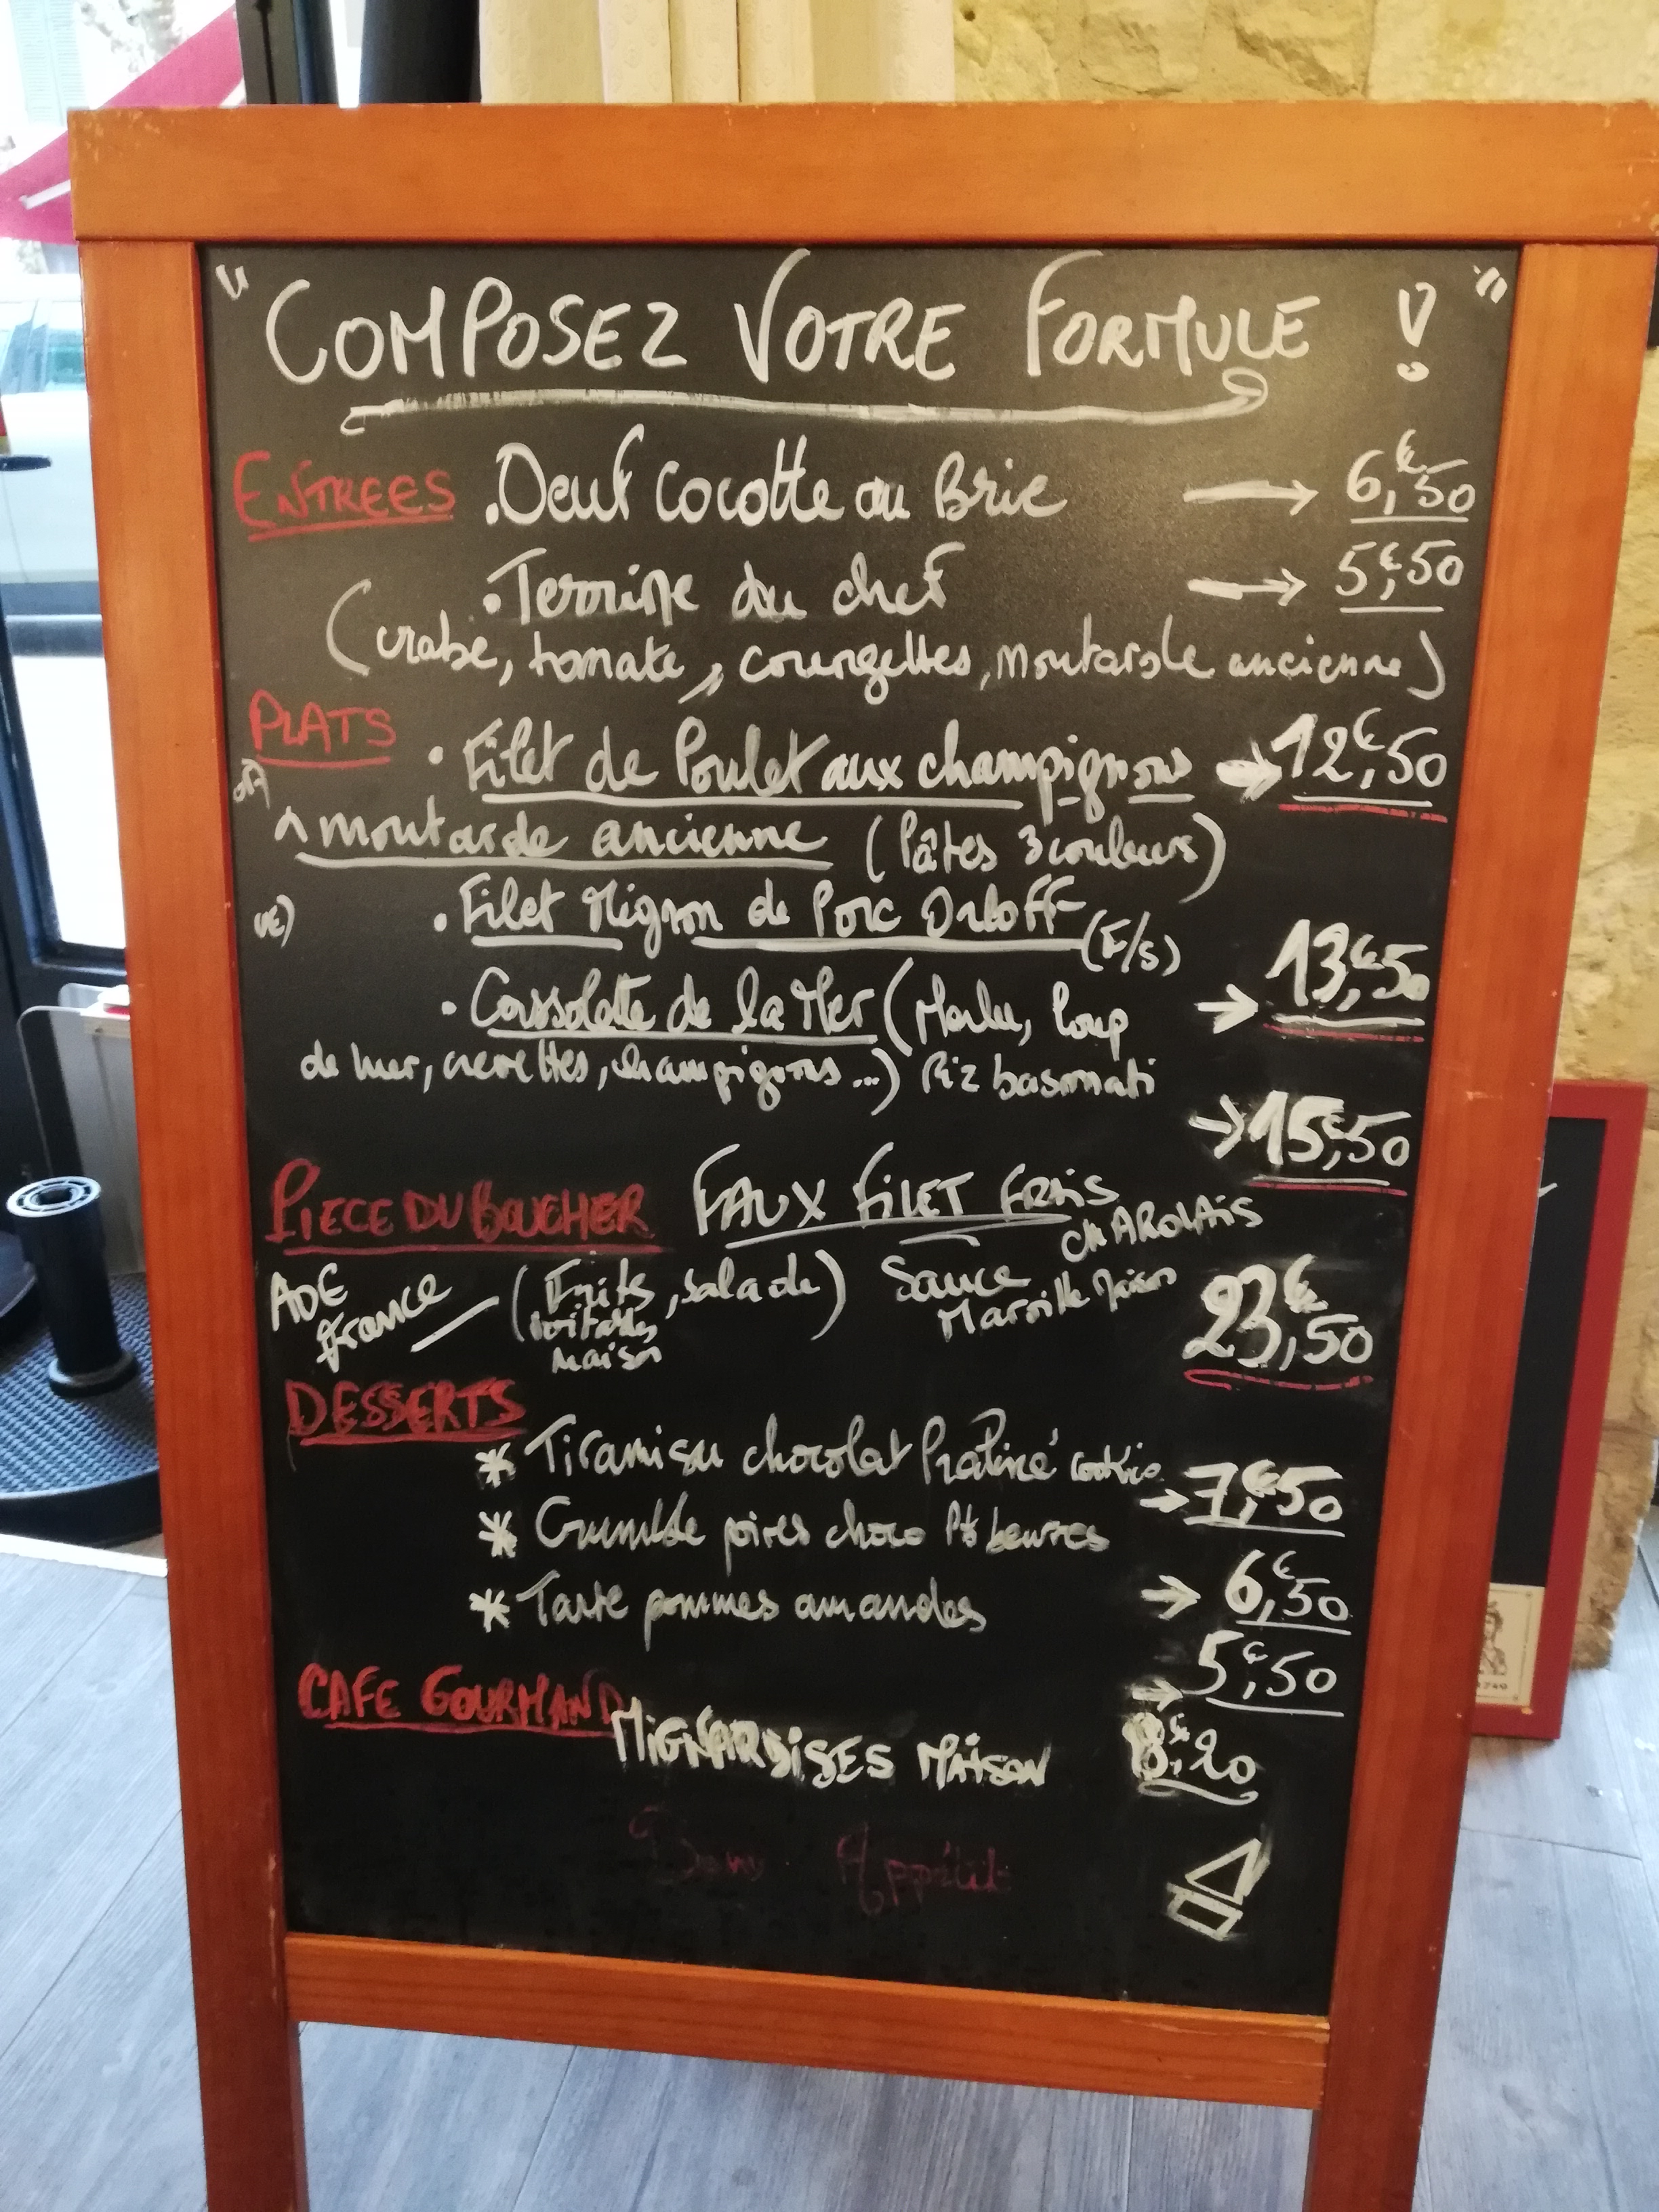 " COMPOSEZ VOTRE FORMULE ! "
ENTREES . Oeuf Cocotte au Brie → 6,€50
. Terrine du chef → 5,€50
(crabe, tomate, courgettes, moutarde ancienne)
PLATS . Filet de Poulet aux champignons → 12,€50
^ moutarde ancienne (Pâtes 3 couleurs)
VE) . Filet Mignon de Porc Orloff (F/S)
→ 13,€50
. Cassolette de la Mer (Merlu, loup
de mer, crevettes, champignons...) Riz basmati
→ 15,€50
PIECE DU BOUCHER FAUX FILET FRAIS
CHAROLAIS
ADE France (Frites, salade) Sauce
véritables maison Maroille Maison 23,€50
DESSERTS
* Tiramisu chocolat Praliné cookie → 7,€50
* Crumble poires choco Pts beurres → 6,€50
* Tarte pommes amandes
→ 5,€50
CAFE GOURMAND MIGNARDISES MAISON 8,€20
Bons Appétit